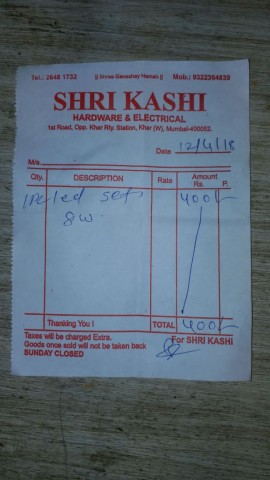 Tel.: 2648 1732 || Shree Ganeshay Namah || Mob.: 9322354839
SHRI KASHI
HARDWARE & ELECTRICAL
1st Road, Opp. Khar Rly. Station, Khar (W), Mumbai-400052.
Date 12/4/18
M/s
Qty. DESCRIPTION Rate Amount Rs. P.
1 led set 400/-
8W
Thanking You ! TOTAL 400/-
Taxes will be charged Extra. For SHRI KASHI
Goods once sold will not be taken back
SUNDAY CLOSED